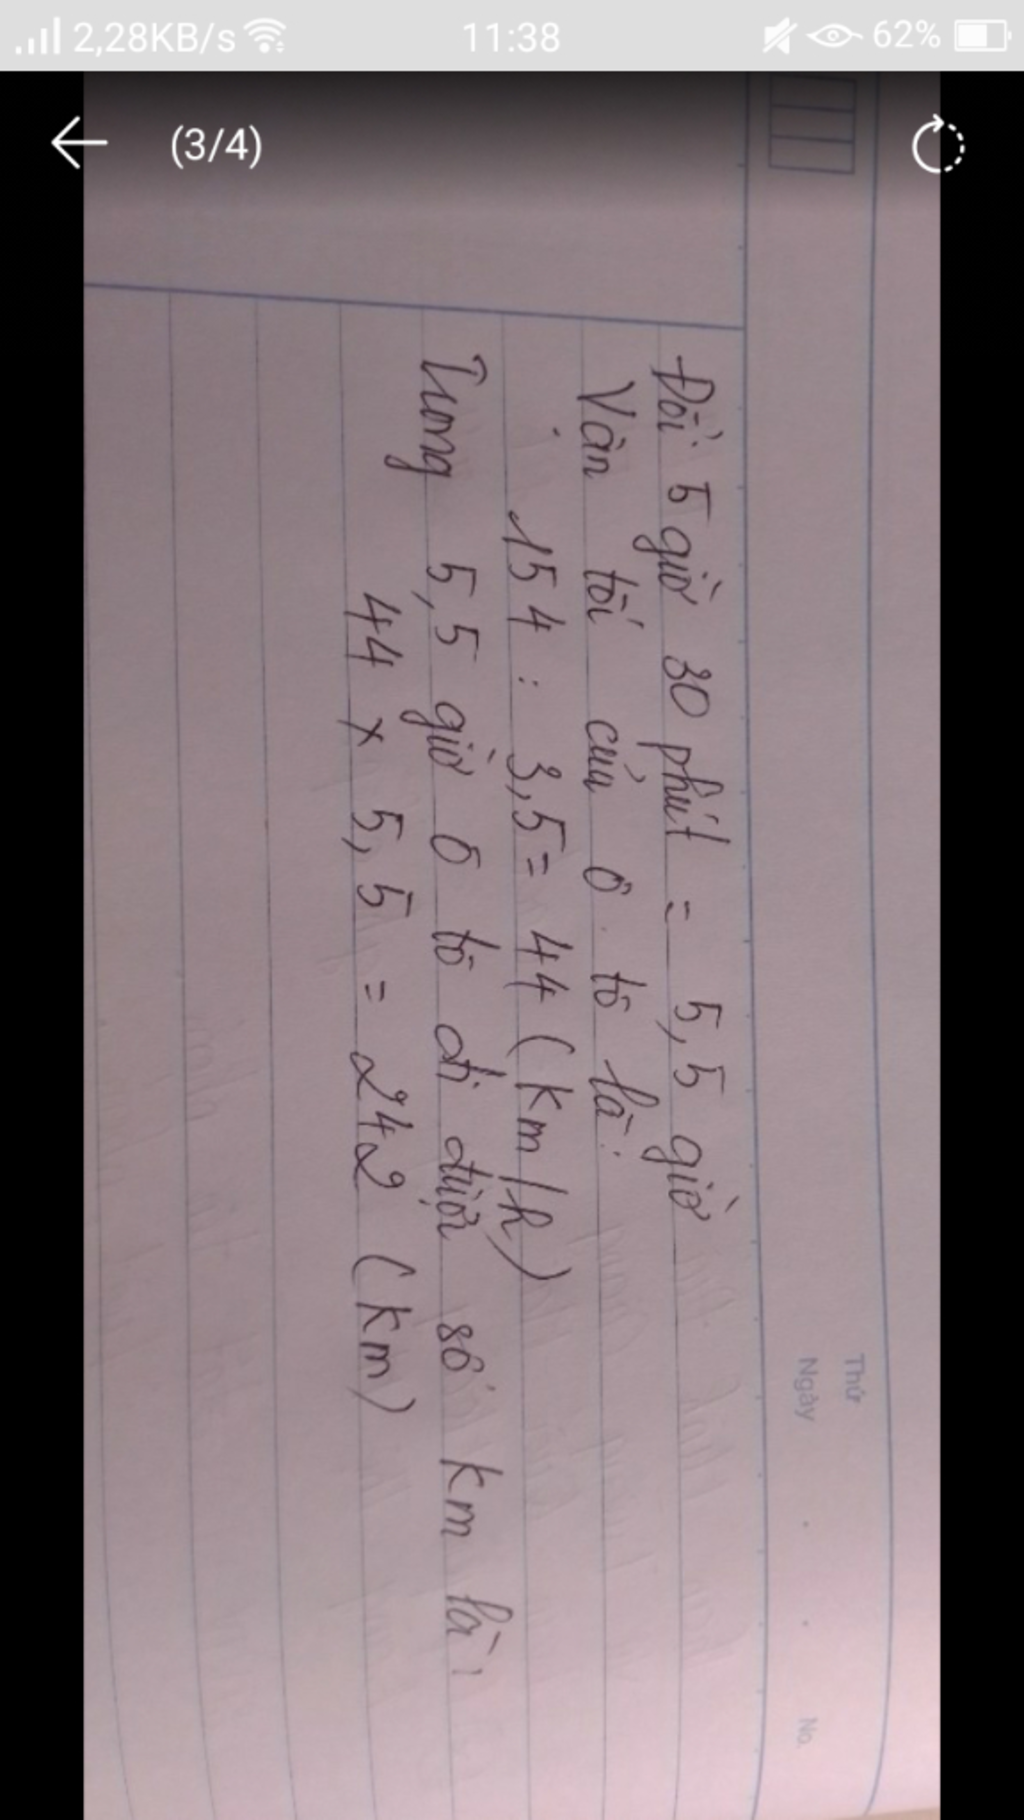 2,28KB/s 11:38 62%
(3/4)
Thứ
Ngày No.
Đổi 5 giờ 30 phút = 5,5 giờ
Vận tốc của ô tô là:
154 : 3,5 = 44 (km/h)
Trong 5,5 giờ ô tô đi được số km là:
44 x 5,5 = 242 (km)